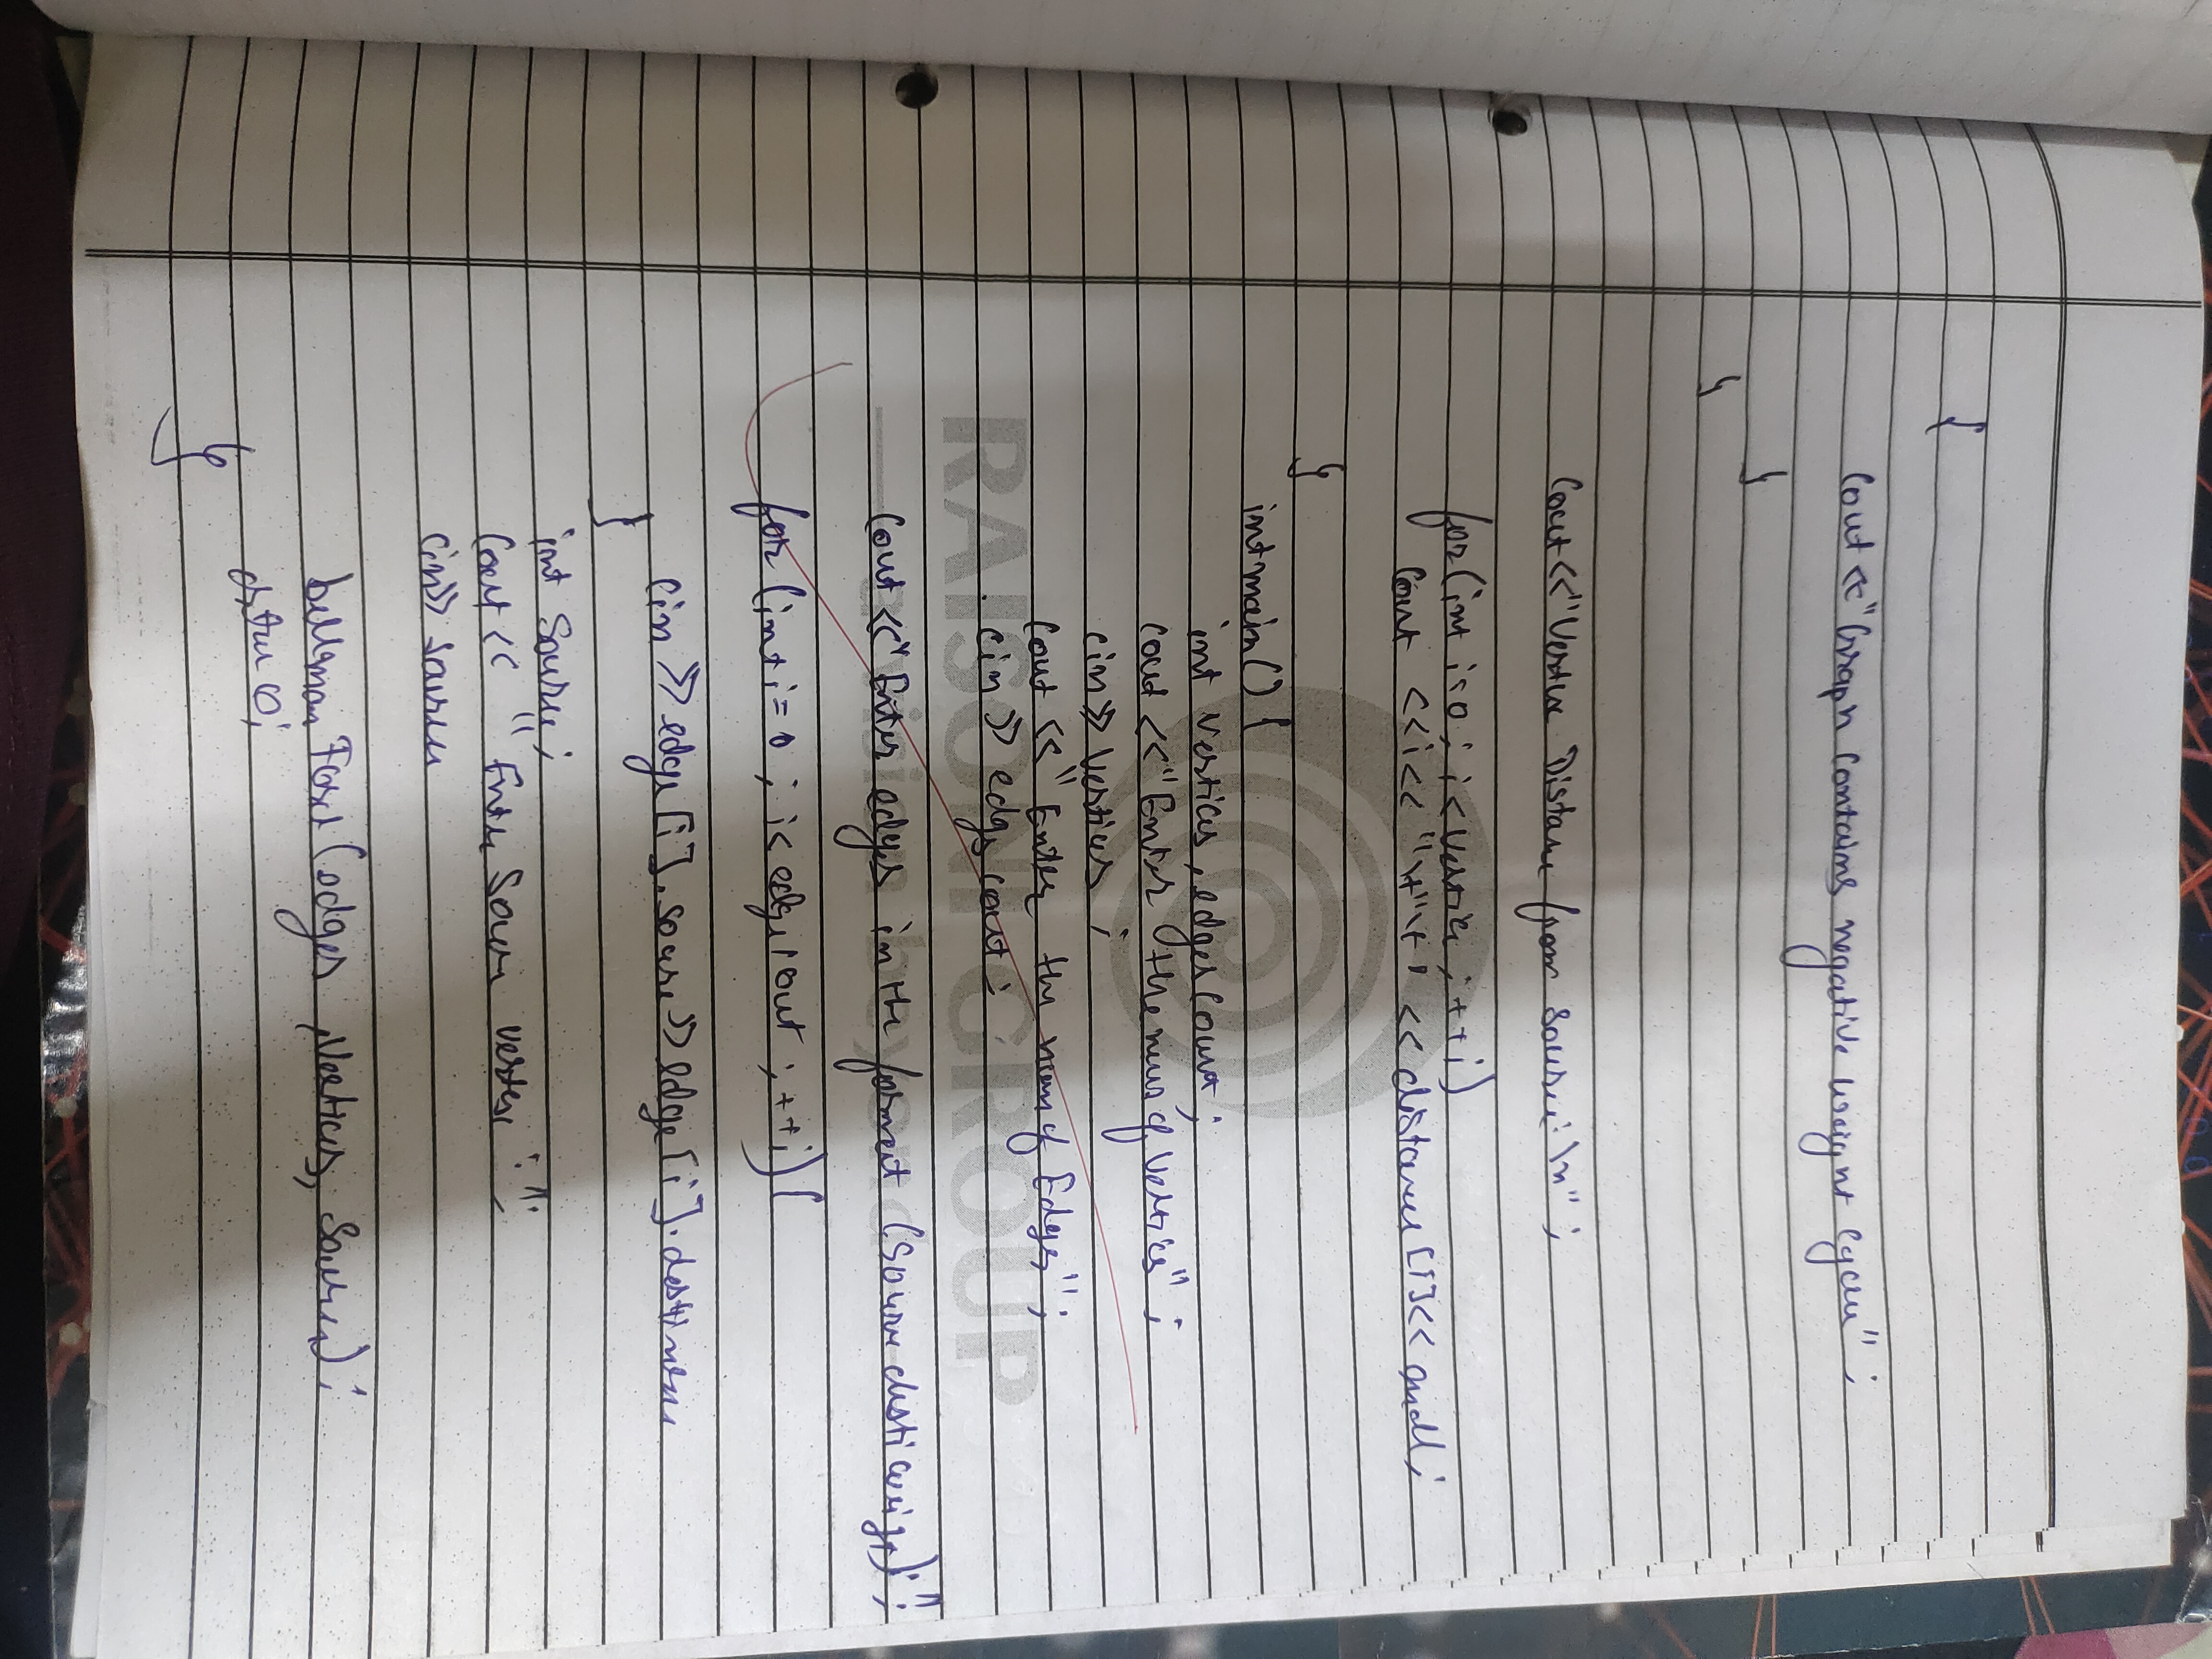 {
Cout << "Graph Contains negative weight Cycle" ;
}
}
Cout<<"Vertex Distance from source: \n" ;
for (int i=0 ; i< vertice ; ++i)
Cout <<i<< "\t"\t" << distance [i]<< endl ;
}
int main() {
int vertices, edges Count ;
cout <<"Enter the num of vertices" ;
cin >> vertices ;
Cout <<" Enter the num of Edges" ;
cin >> edges cout ;
RAISONI GROUP
a vision beyond
Cout <<" Enter edges in the format (Source desti weigt):" ;
for (int i = 0 ; i< edges cout ; ++i) {
Cin >> edge [i]. source >> edge [i]. destinem
}
int Source ;
Cout << " Enter Source vertex :" ;
Cin>> source
bellman Ford (edges , Vertices, Source) ;
return 0;
}